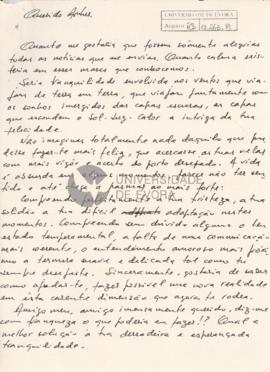 Querido Artur.
UNIVERSIDADE DE ÉVORA
Arquivo
Quanto me gostaria que fossem sòmente alegrias
todas as notícias que me envias. Quanta calma exis-
tiria em esse mares que conhecemos.
Seria tranquilidade envolvida nos ventos que via-
jam de terra em terra, que viajam juntamente com
os sonhos imergidos das capas escuras, as capas
que escondem o sol-luz. Calor a intriga da tua
felicidade.
Não imaginas totalmente nada daquilo que pu-
desse fazer-te mais feliz, que acercasse as tuas velas
com mais visão ao certo do porto desejado. A vida
é absurda em alguns momentos, parece não ter sen-
tido e até faça o pasmar ao mais forte.
Compreendo perfeitamente a tua tristeza, a tua
solidão a tua difícil adaptação nestes
momentos. Compreendo sem dúvida alguma o teu
estado temperamental, a falta de uma comunicação
mais coerente, o entendimento amoroso mais pró-
ximo a ternura suave e delicada tal como tu
sempre desejaste. Sinceramente, gostaria de saber
como ajudar-te, fazer possível uma nova realidade
em esta carente dimensão que agora te rodea.
Amigo meu, amigo imensamente querido, diz-me
com franqueza o que poderia eu fazer!? Qual a
melhor solução à tua derradeira e esperançada
tranquilidade.
UNIVERSIDADE
DE ÉVORA